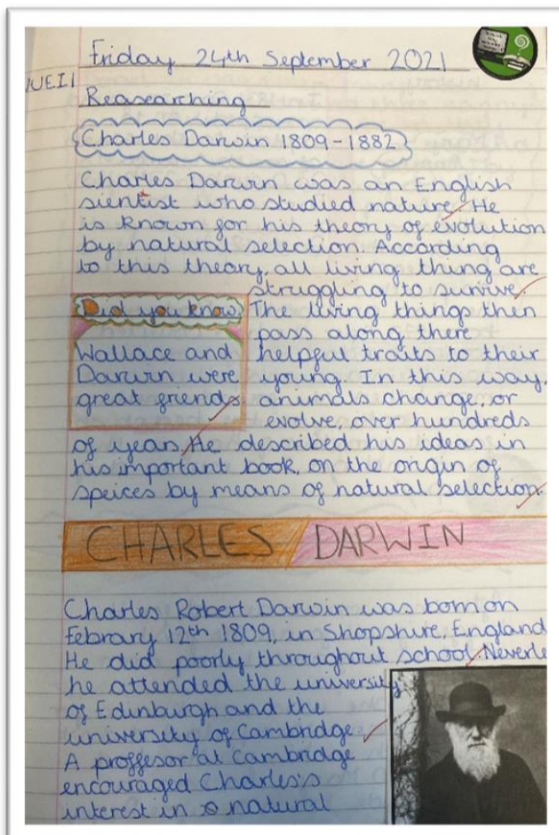 Friday 24th September 2021
WEI1
Reasearching
Charles Darwin 1809-1882
Charles Darwin was an English
sientist who studied nature. He
is known for his theory of evolution
by natural selection. According
to this theory, all living thing are
struggling to survive.
Did you know
Wallace and
Darwin were
great friends
The living things then
pass along there
helpful traits to their
young. In this way,
animals change, or
evolve, over hundreds
of years. He described his ideas in
his important book, on the origin of
speices by means of natural selection.
CHARLES DARWIN
Charles Robert Darwin was born on
febrary 12th 1809, in Shopshire, England
He did poorly throughout school. Neverle
he attended the university
of Edinburgh and the
university of Cambridge
A proffesor at Cambridge
encouraged Charles's
interest in natural